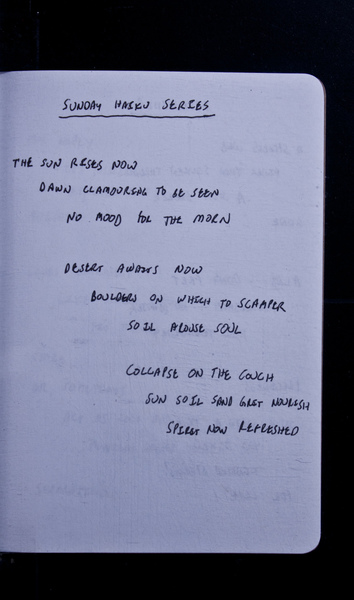 SUNDAY HAIKU SERIES
THE SUN RISES NOW
DAWN CLAMOURING TO BE SEEN
NO MOOD FOR THE MORN
DESERT AWAITS NOW
BOULDERS ON WHICH TO SCAMPER
SOIL AROUSE SOUL
COLLAPSE ON THE COUCH
SUN SOIL SAND GRIT NOURISH
SPIRIT NOW REFRESHED